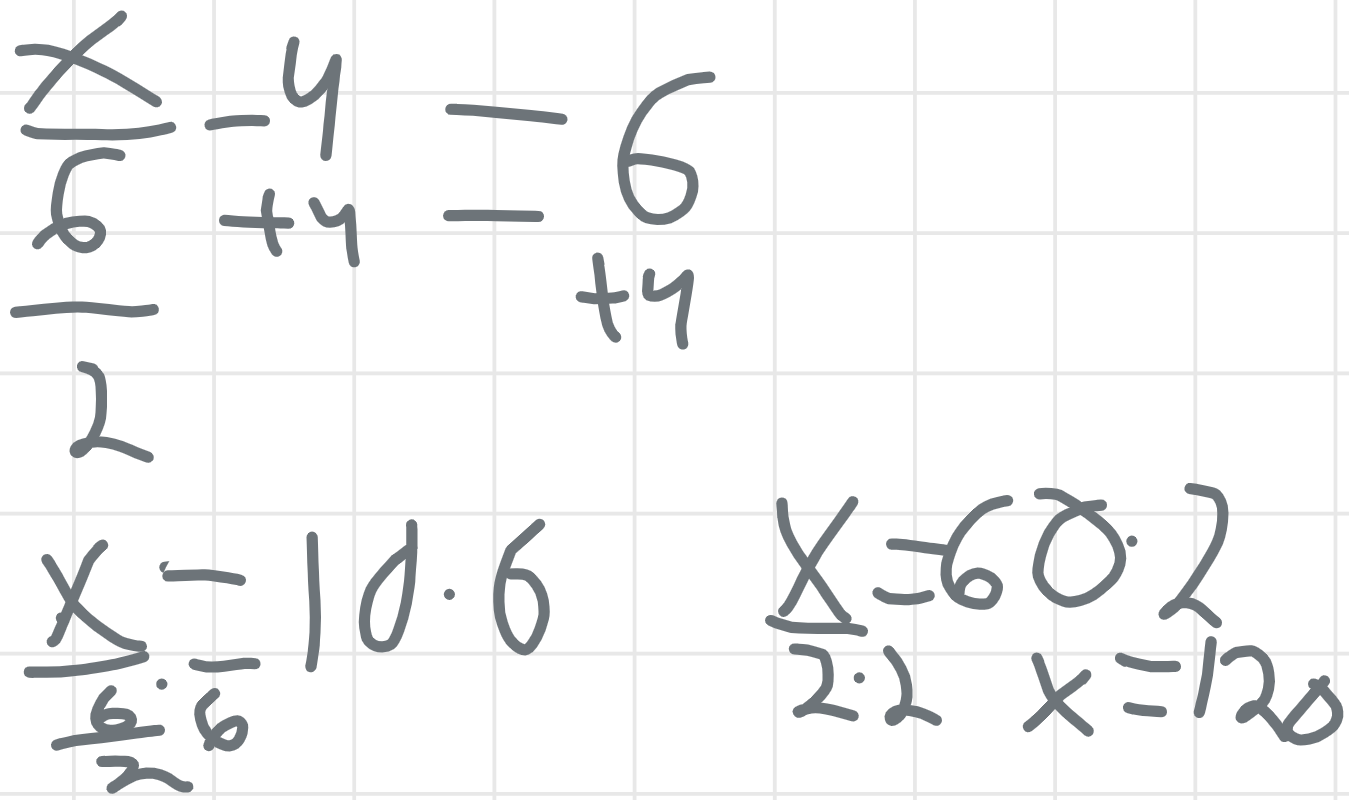 x/6/2 - 4 = 6
+4 +4
x/6/2 · 6 = 10 · 6
x/2 · 2 = 60 · 2
x = 120